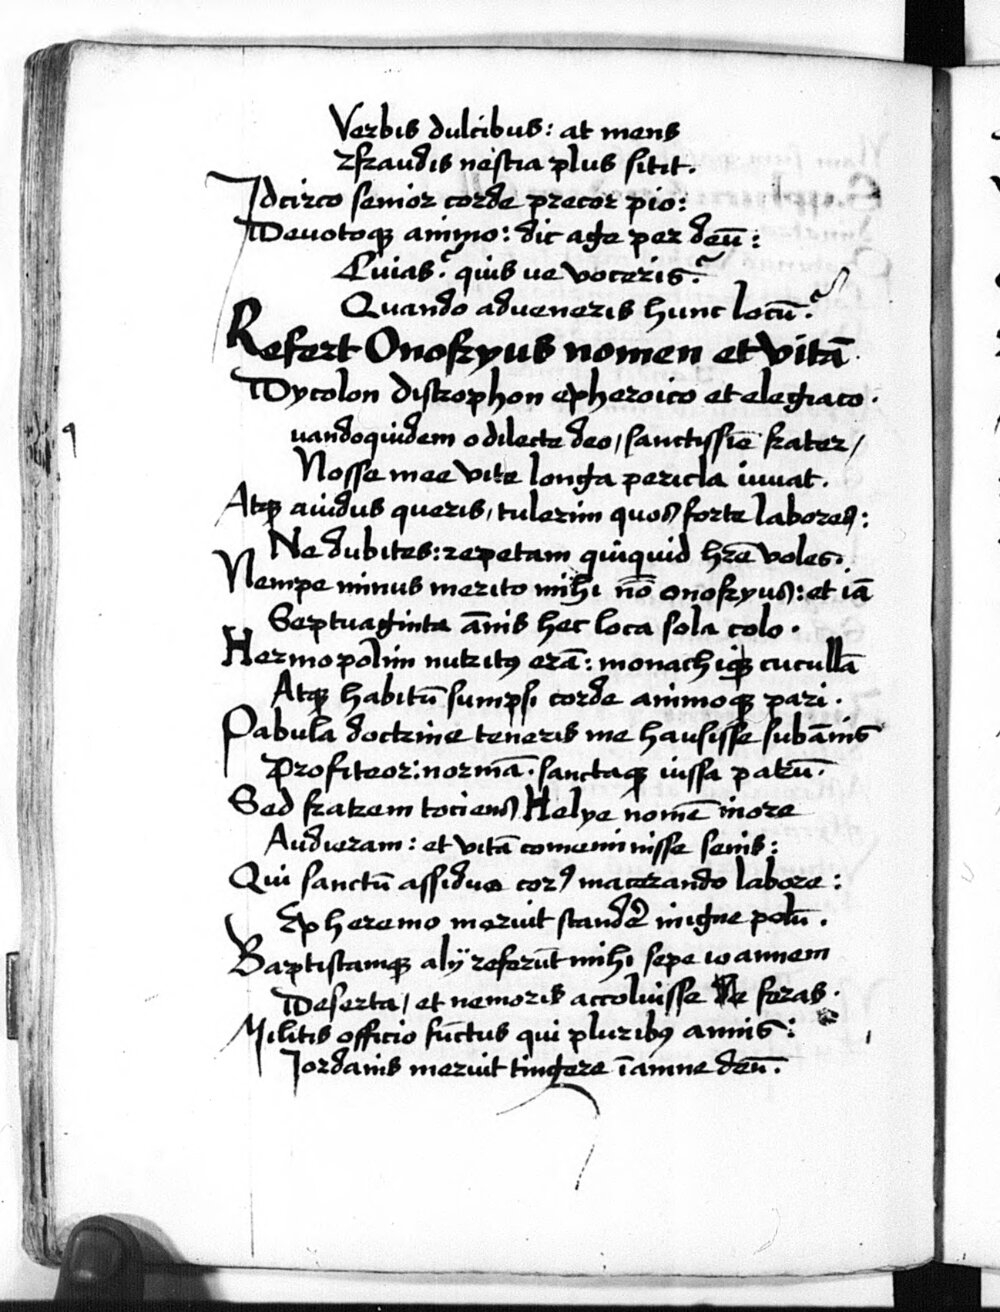 Verbis dulcibus: at mens
& fraudis nescia plus sitit.
Idcirco senior corde precor pio:
Deuotoqꝫ animo: dic age per deū:
Cuias? quis ue voceris?
Quando adueneris hunc locū?
Refert Onofryus nomen et vitā.
Dycolon distrophon ex heroico et elegiaco.
uandoquidem o dilecte deo, sanctissīe frater,
Nosse mee vite longa pericla iuuat.
Atqꝫ auidus queris, tulerim quos forte labores:
Ne dubites: repetam quicquid hr̄e voles.
Nempe minus merito mihi nō onofryus: et iā
Septuaginta ānis hec loca sola colo.
Hermopolim nutritꝰ erā: monachiqꝫ cucullā
Atqꝫ habitū sumpsi corde animoqꝫ pari.
Pabula doctrine teneris me hausisse sub ānis
Profiteor: normā. sanctaqꝫ iussa patrū.
Sed fratrem tociens Helye nomē in ore
Audieram: et vitā comeminisse senis:
Qui sanctū assiduo corꝰ macerando labore:
Ex heremo meruit scandere in igne polū.
Baptistamqꝫ alij referūt mihi sepe ioannem
Deserta, et nemoris accoluisse feras.
Militis officio fūctus qui pluribꝰ annis:
Iordanis meruit tingere ī amne deū.